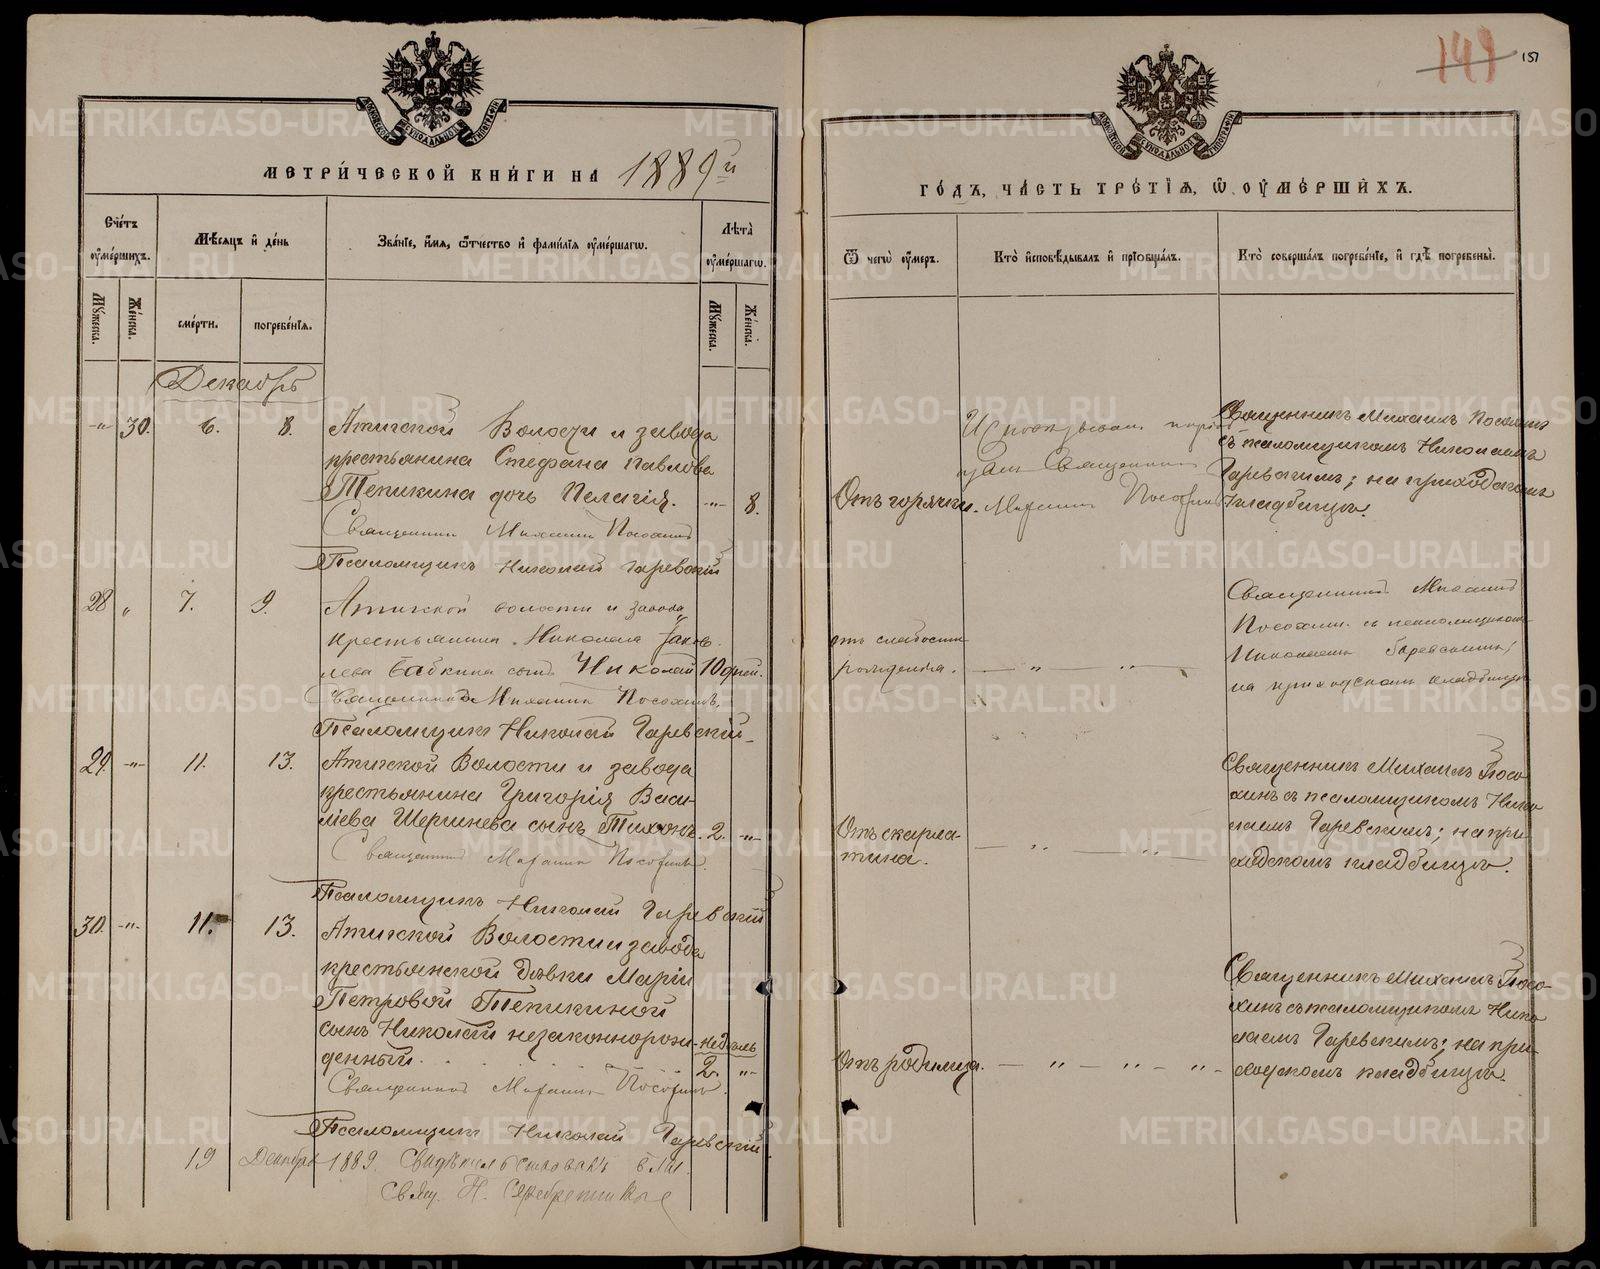 149
151
МЕТРИЧЕСКОЙ КНИГИ НА 1889 й
ГОДЪ, ЧАСТЬ ТРЕТІЯ, Ѿ ОУМЕРШИХЪ.
Счетъ оумершихъ.
Мѣсяцъ и день
Званіе, имя, ѿтчество и фамилія оумершагѡ.
Лѣта оумершагѡ.
Мужеска.
Женска.
смерти.
погребенія.
Мужеска.
Женска.
Ѿ чегѡ оумеръ.
Кто исповѣдывалъ и пріобщалъ.
Кто совершалъ погребеніе, и гдѣ погребены.
Декабрь
-"- 30. 6. 8.
Атигской Волости и завода
крестьянина Стефана Павлова
Тепикина дочь Пелагія. -"- 8.
Священникъ Михаилъ Посохинъ
Псаломщикъ Николай Гаревской
Отъ горячки.
Священникъ
Михаилъ Посохинъ
Священникъ Михаилъ Посохинъ
съ псаломщикомъ Николаемъ
Гаревскимъ; на приходскомъ
кладбищѣ.
28 " 7. 9.
Атигской волости и завода
крестьянина Николая Яков
лева Бабкина сынъ Николай 10 дней.
Священникъ Михаилъ Посохинъ.
Псаломщикъ Николай Гаревской
отъ слабости
рожденія. — " — " —
Священникъ Михаилъ
Посохинъ съ псаломщикомъ
Николаемъ Гаревскимъ;
на приходскомъ кладбищѣ
29. -"- 11. 13.
Атигской Волости и завода
крестьянина Григорія Васи-
лiева Шершнева сынъ Тихонъ. 2. -"-
Священникъ Михаилъ Посохинъ.
Псаломщикъ Николай Гаревской
Отъ скарла-
тина. — " — " —
Священникъ Михаилъ Посо-
хинъ съ псаломщикомъ Нико-
лаемъ Гаревскимъ; на при-
ходскомъ кладбищѣ.
30. -"- 11. 13.
Атигской Волости и завода
крестьянской дѣвки Маріи
Петровой Тепикиной
сынъ Николай незаконнорож- недѣль
денный. . . . . 2. -"-
Священникъ Михаилъ Посохинъ.
Псаломщикъ Николай Гаревской.
Отъ родимца. — " — " — " —
Священникъ Михаилъ Посо-
хинъ съ псаломщикомъ Нико-
лаемъ Гаревскимъ; на при-
ходскомъ кладбищѣ.
19 Декабря 1889. Свидѣтельствовалъ
Свящ. Н. Серебренниковъ
METRIKI.GASO-URAL.RU